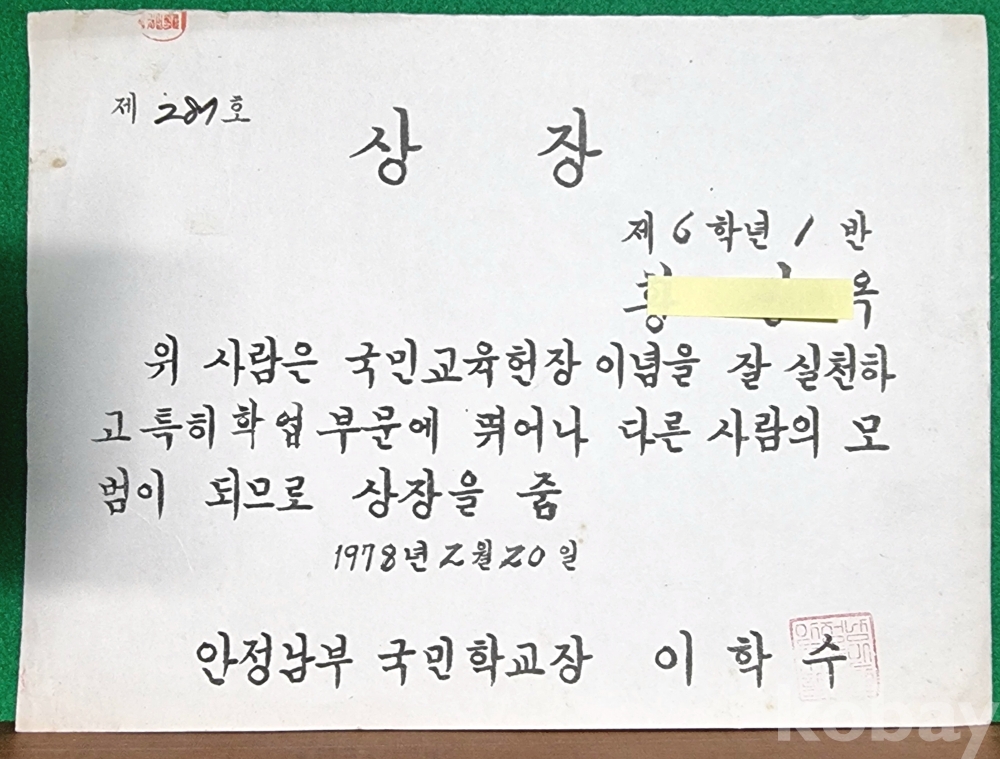 제 287호
상 장
제 6 학년 1 반
옥
위 사람은 국민교육헌장 이념을 잘 실천하
고 특히 학업 부문에 뛰어나 다른 사람의 모
범이 되므로 상장을 줌
1978년 2월 20일
안정남부 국민학교장 이 학 수
kobay